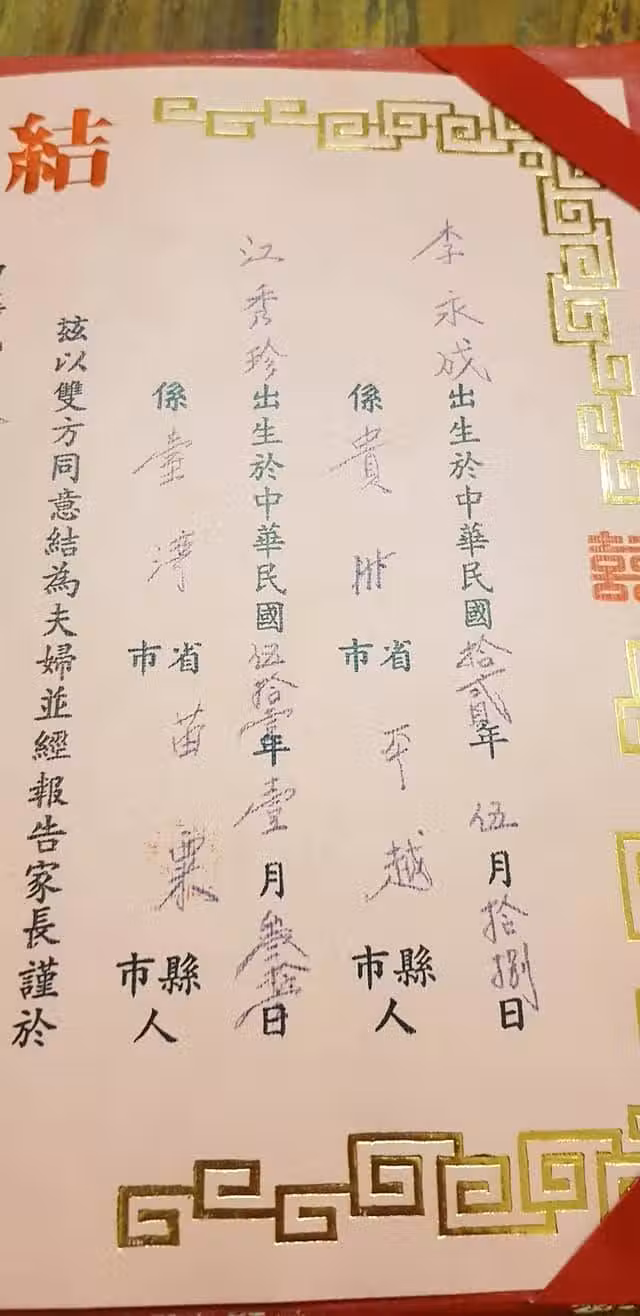 囍
結
李永成出生於中華民國拾貳年伍月拾捌日
係貴州省市平越縣市人
江秀珍出生於中華民國伍拾壹年壹月叁拾日
係臺灣省市苗栗縣市人
茲以雙方同意結為夫婦並經報告家長謹於